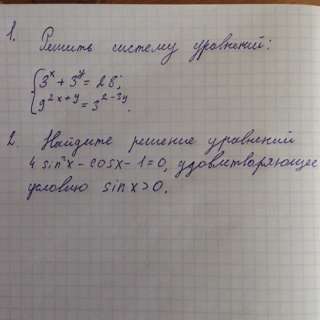 1.
Решить систему уравнений:
3ˣ + 3ʸ = 28;
9²ˣ⁺ʸ = 3²⁻³ʸ.
2. Найдите решение уравнений
4 sin²x - cosx - 1 = 0, удовлетворяющее
условию sin x > 0.